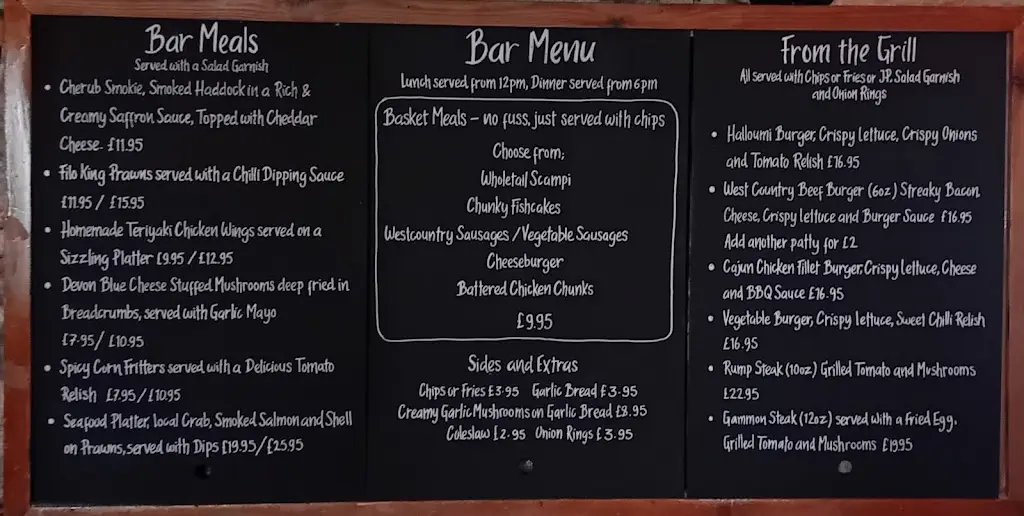 Bar Meals
Served with a Salad Garnish
• Cherub Smokie, Smoked Haddock in a Rich &
Creamy Saffron Sauce, Topped with Cheddar
Cheese. £11.95
• Filo King Prawns served with a Chilli Dipping Sauce
£11.95 / £15.95
• Homemade Teriyaki Chicken Wings served on a
Sizzling Platter £9.95 / £12.95
• Devon Blue Cheese Stuffed Mushrooms deep fried in
Breadcrumbs, served with Garlic Mayo
£7.95/ £10.95
• Spicy Corn Fritters served with a Delicious Tomato
Relish £7.95/£10.95
• Seafood Platter, local Crab, Smoked Salmon and Shell
on Prawns, served with Dips £19.95/£25.95
Bar Menu
Lunch served from 12pm, Dinner served from 6pm
Basket Meals – no fuss, just served with chips
Choose from;
Wholetail Scampi
Chunky Fishcakes
Westcountry Sausages / Vegetable Sausages
Cheeseburger
Battered Chicken Chunks
£9.95
Sides and Extras
Chips or Fries £3.95 Garlic Bread £3.95
Creamy Garlic Mushrooms on Garlic Bread £8.95
Coleslaw £2.95 Onion Rings £3.95
From the Grill
All served with Chips or Fries or J.P, Salad Garnish
and Onion Rings
• Halloumi Burger, Crispy Lettuce, Crispy Onions
and Tomato Relish £16.95
• West Country Beef Burger (6oz) Streaky Bacon,
Cheese, Crispy lettuce and Burger Sauce £16.95
Add another patty for £2
• Cajun Chicken Fillet Burger, Crispy Lettuce, Cheese
and BBQ Sauce £16.95
• Vegetable Burger, Crispy lettuce, Sweet Chilli Relish
£16.95
• Rump Steak (10oz) Grilled Tomato and Mushrooms
£22.95
• Gammon Steak (12oz) served with a fried Egg,
Grilled Tomato and Mushrooms £19.95